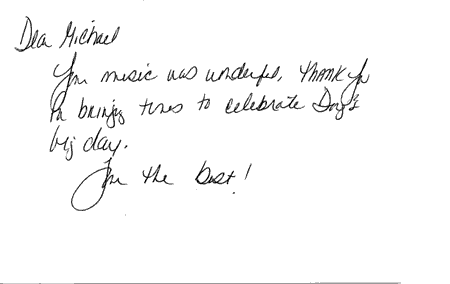 Dear Michael
Your music was wonderful, Thank You
for bringing tunes to celebrate Doug's
big day.
You the best!